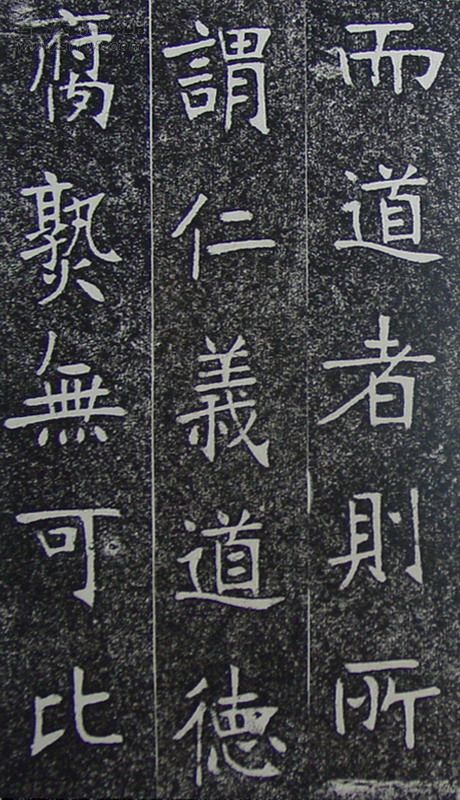 而道者則所
謂仁義道徳
腐熟無可比